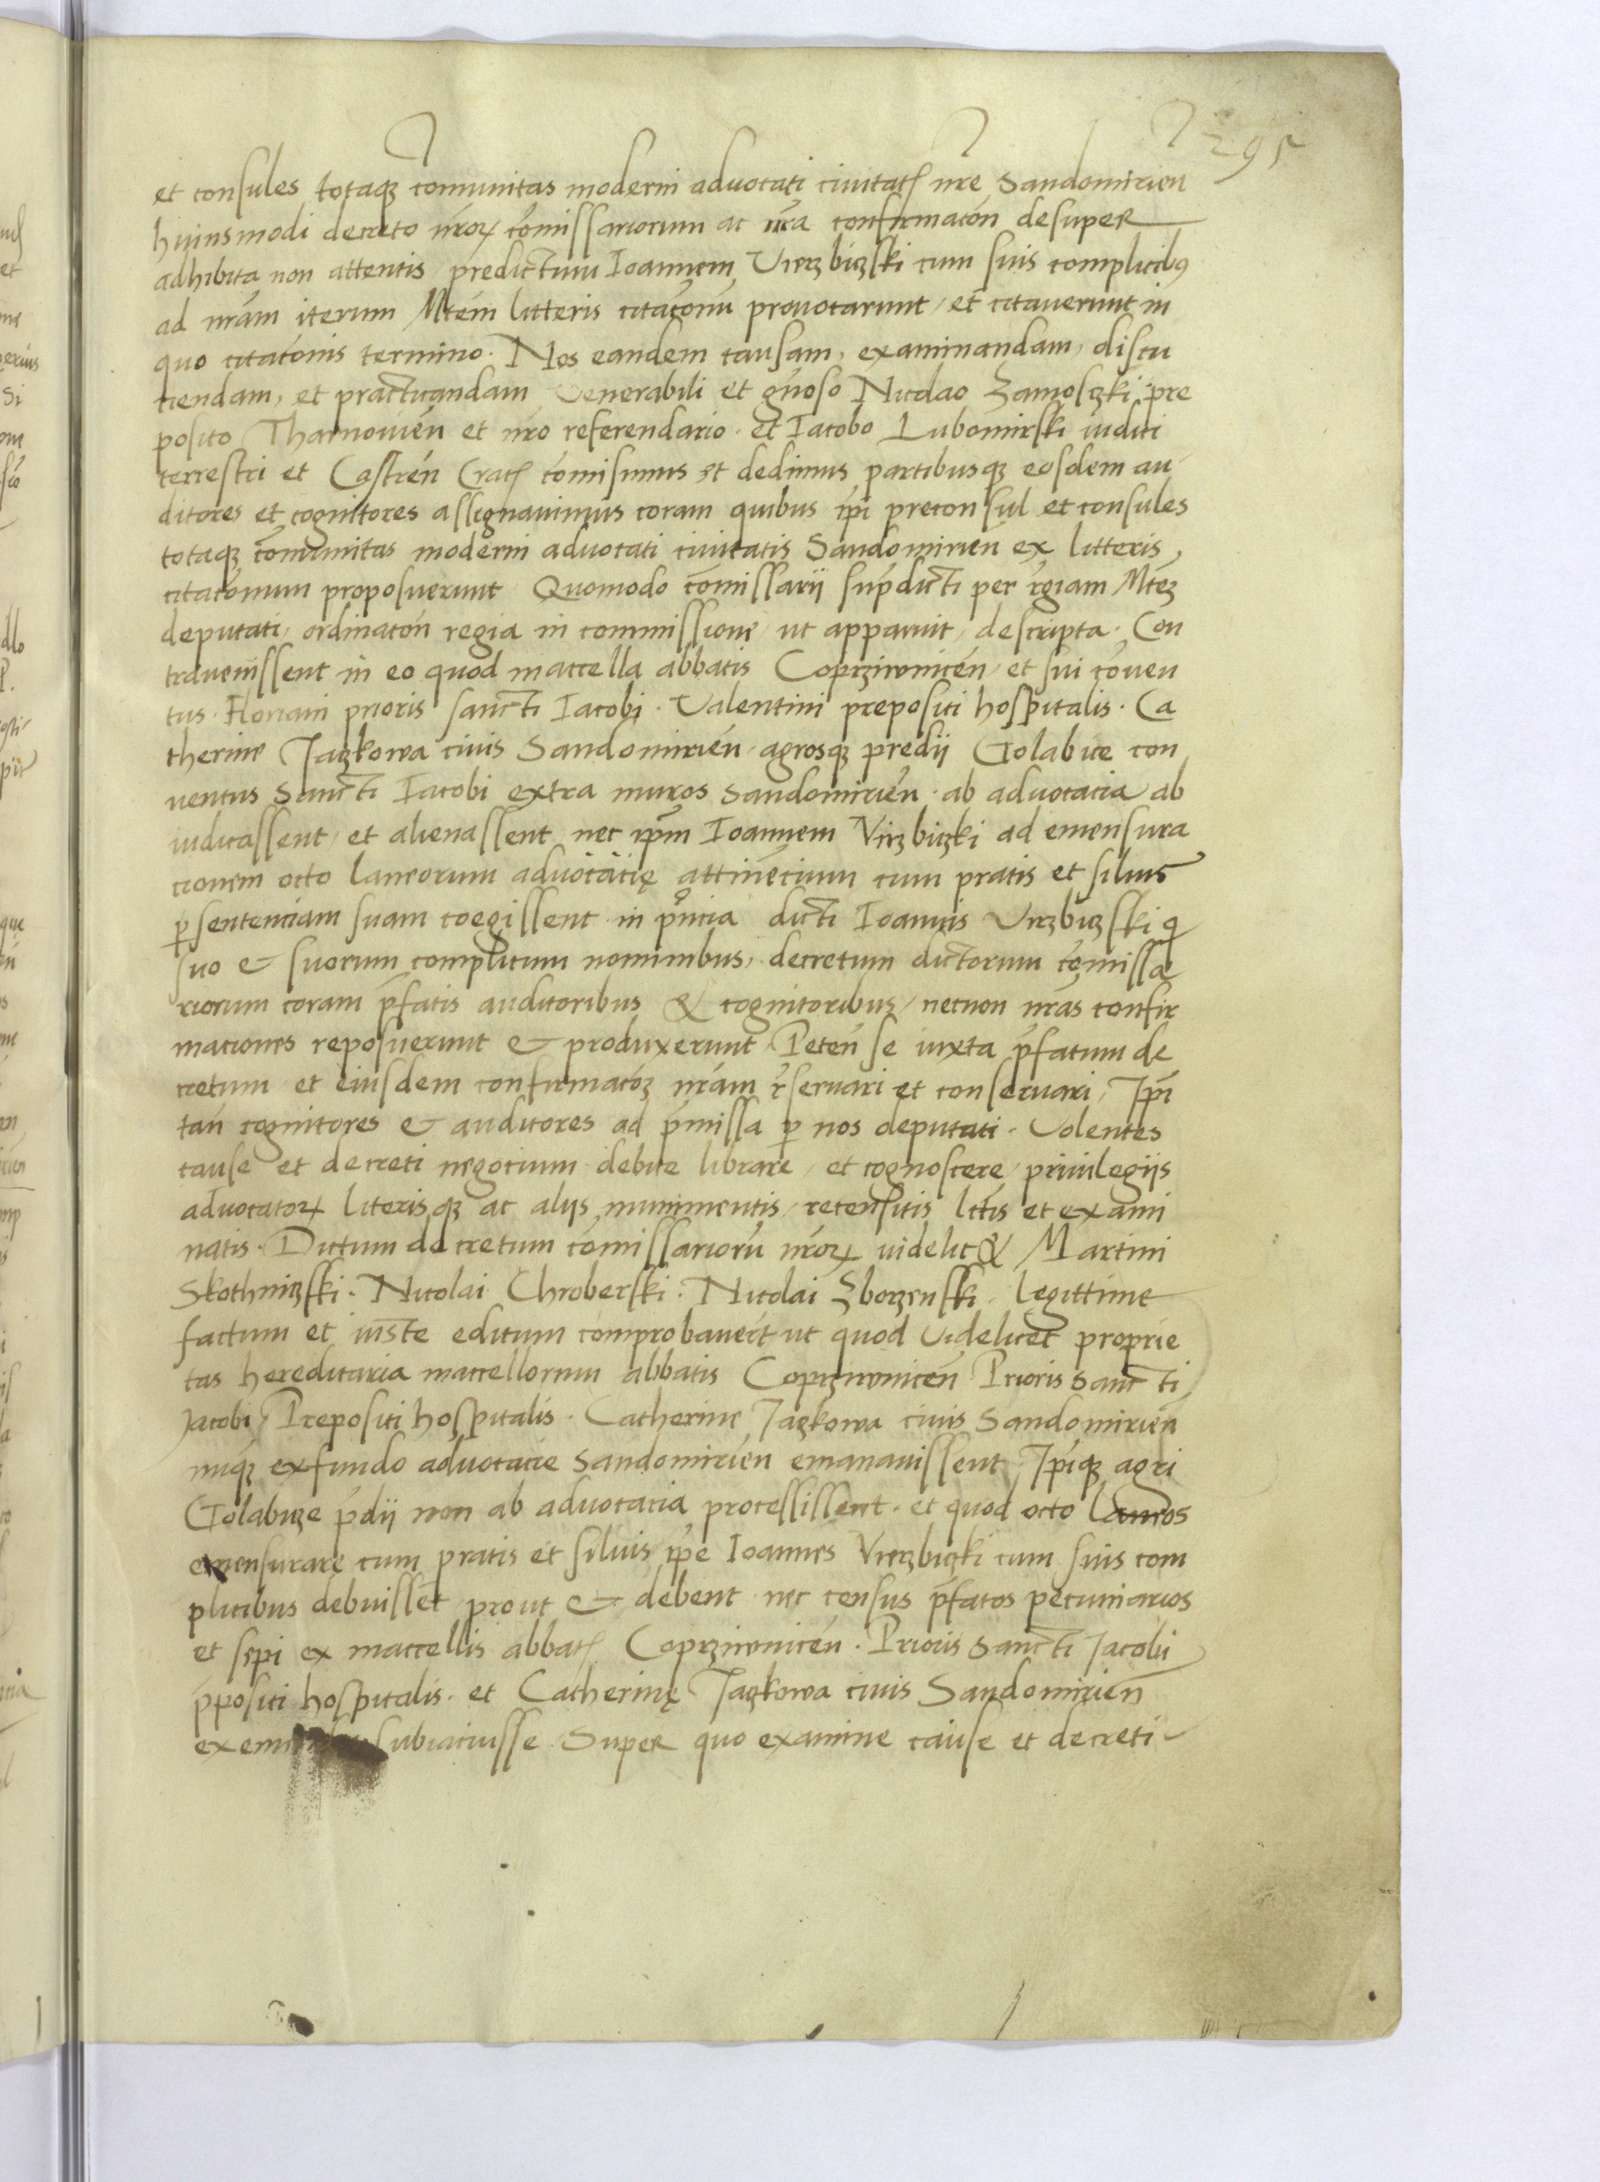 295
et consules totaq₃ com̄unitas moderni aduocati ciuitatꝭ nr̄e Sandomirien
huiusmodi decreto nr̄oꝝ com̄issariorum ac nr̄a confirmatōn desuper
adhibita non attentis predictum Ioannem Virzbiczski cum suis complicibꝰ
ad nr̄am iterum Mtem̄ litteris citatōnū prouocarunt / et citauerunt in
quo citatōnis termino. Nos eandem causam, examinandam, discu
tiendam, et practicandam Venerabili et gn̄oso Nicolao Zamosczki pre
posito Tharnouien̄ et nr̄o referendario. et Iacobo Lubomirski iudici
terrestri et Castren̄ Cracꝭ com̄isimus et dedimus partibusq₃ eosdem au
ditores et cognitores assignauimus coram quibus ip̄i preconsul et consules
totaq₃ com̄unitas moderni aduocati ciuitatis Sandomirien̄ ex litteris,
citatōnum proposuerunt Quomodo com̄issarij sup̄dicti per rḡiam Mtē₃
deputati, ordinatōn regia in commissione, ut apparuit, descripta. Con
trauenissent in eo quod maccella abbatis Coprziwnicen̄ et sui cōuen
tus. Floriani prioris sancti Iacobi. Valentini prepositi hospitalis. Ca
therine Jaczkowa ciuis Sandomirien̄. agrosq₃ predij Golabice con
uentus Sancti Iacobi extra muros Sandomirien̄. ab aduocacia ab
iudicassent, et alienassent, nec ip̄m Ioannem Virzbiczki ad emensura
cionem octo laneorum aduocacię attinēcium cum pratis et siluis
ꝑ sentenciam suam coegissent in p̄ncia dicti Ioannis Virzbiczski q̄
suo & suorum complicum nominibus, decretum dictorum com̄issa
riorum coram p̄fatis auditoribus & cognitoribus, necnon nr̄as confir
maciones reposuerunt & produxerunt Peten̄ se iuxta p̄fatum de
cretum et eiusdem confirmatō₃ nr̄am r̄seruari et conseruari, Ip̄i
tan̄ cognitores & auditores ad p̄missa ꝑ nos deputati. Volentes
cause et decreti negocium debite librare, et cognoscere, priuilegijs
aduocatoꝝ literisq₃ ac alijs munimentis, recensitis lc̄tis et exami
natis. Dictum decretum com̄issariorū nr̄oꝝ uidelic& Martini
Skothniczski. Nicolai Chroberski. Nicolai Zborzenski. legittime
factum et iuste editum comprobauerūt ut quod Videlicet proprie
tas hereditaria maccellorum abbatis Coprziwnicen̄ Prioris Sancti
Jacobi, Prepositi hospitalis. Catherine Jaczkowa ciuis Sandomirien̄
nuq₃ ex fundo aduocacie Sandomirien̄ emanauissent, Ip̄iq₃ agri
Golabicze p̄dij non ab aduocacia processissent. et quod octo laneos
emensurare cum pratis et siluis, ip̄e Ioannes Virzbiczki cum suis com
plicibus debuisset prout & debent nec census p̄fatos pecuniarios
et sepi ex maccellis abbatꝭ Coprziwnicen̄. Prioris Sancti Jacobi
p̄positi hospitalis. et Catherinę Jaczkowa ciuis Sandomirien̄
subiacuisse. Super quo examine cause et decreti